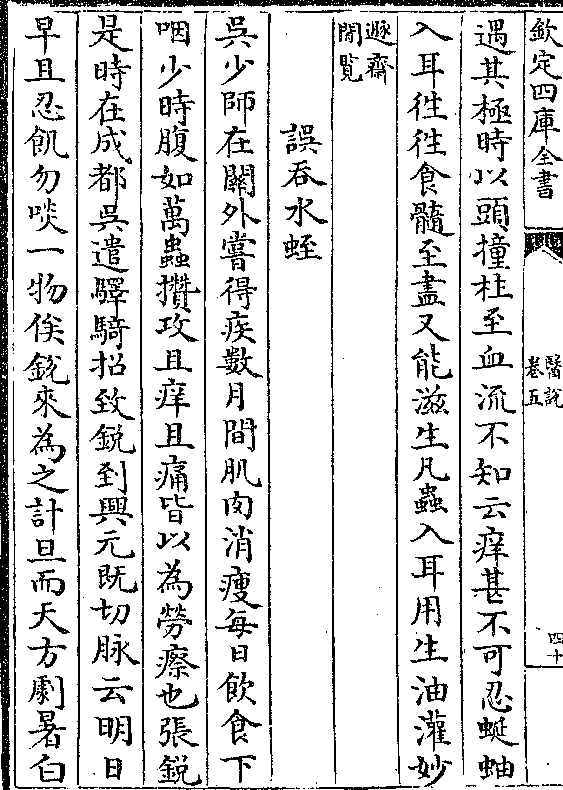 欽定四庫全書
醫說
卷五
四十
遇其極時以頭撞柱至血流不知云痒甚不可忍蜒蚰
入耳徃徃食髓至盡又能滋生凡蟲入耳用生油灌妙
遯齋
閒覧
誤吞水蛭
吳少師在關外嘗得疾數月間肌肉消瘦每日飲食下
咽少時腹如萬蟲攢攻且痒且痛皆以為勞瘵也張鋭
是時在成都吳遣驛騎招致鋭到興元既切脉云明日
早且忍飢勿啖一物俟鋭來為之計旦而天方劇暑白